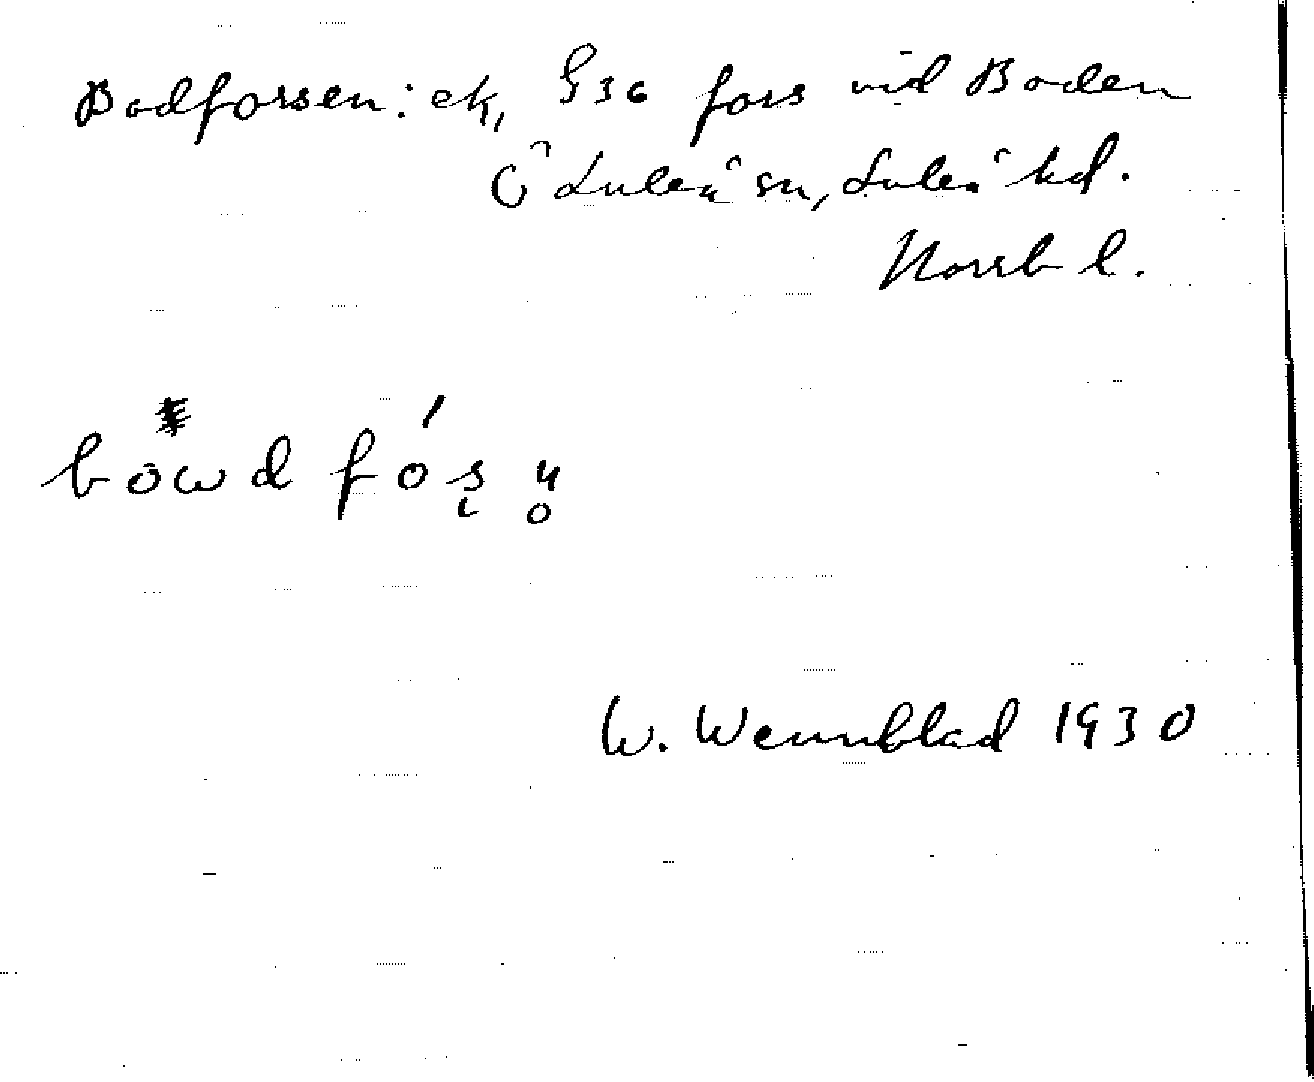 Bodforsen: ek, G36 fors vid Boden
Ö Luleå sn, Luleå hd.
Norrb l.
bowd fós n
W. Wennblad 1930